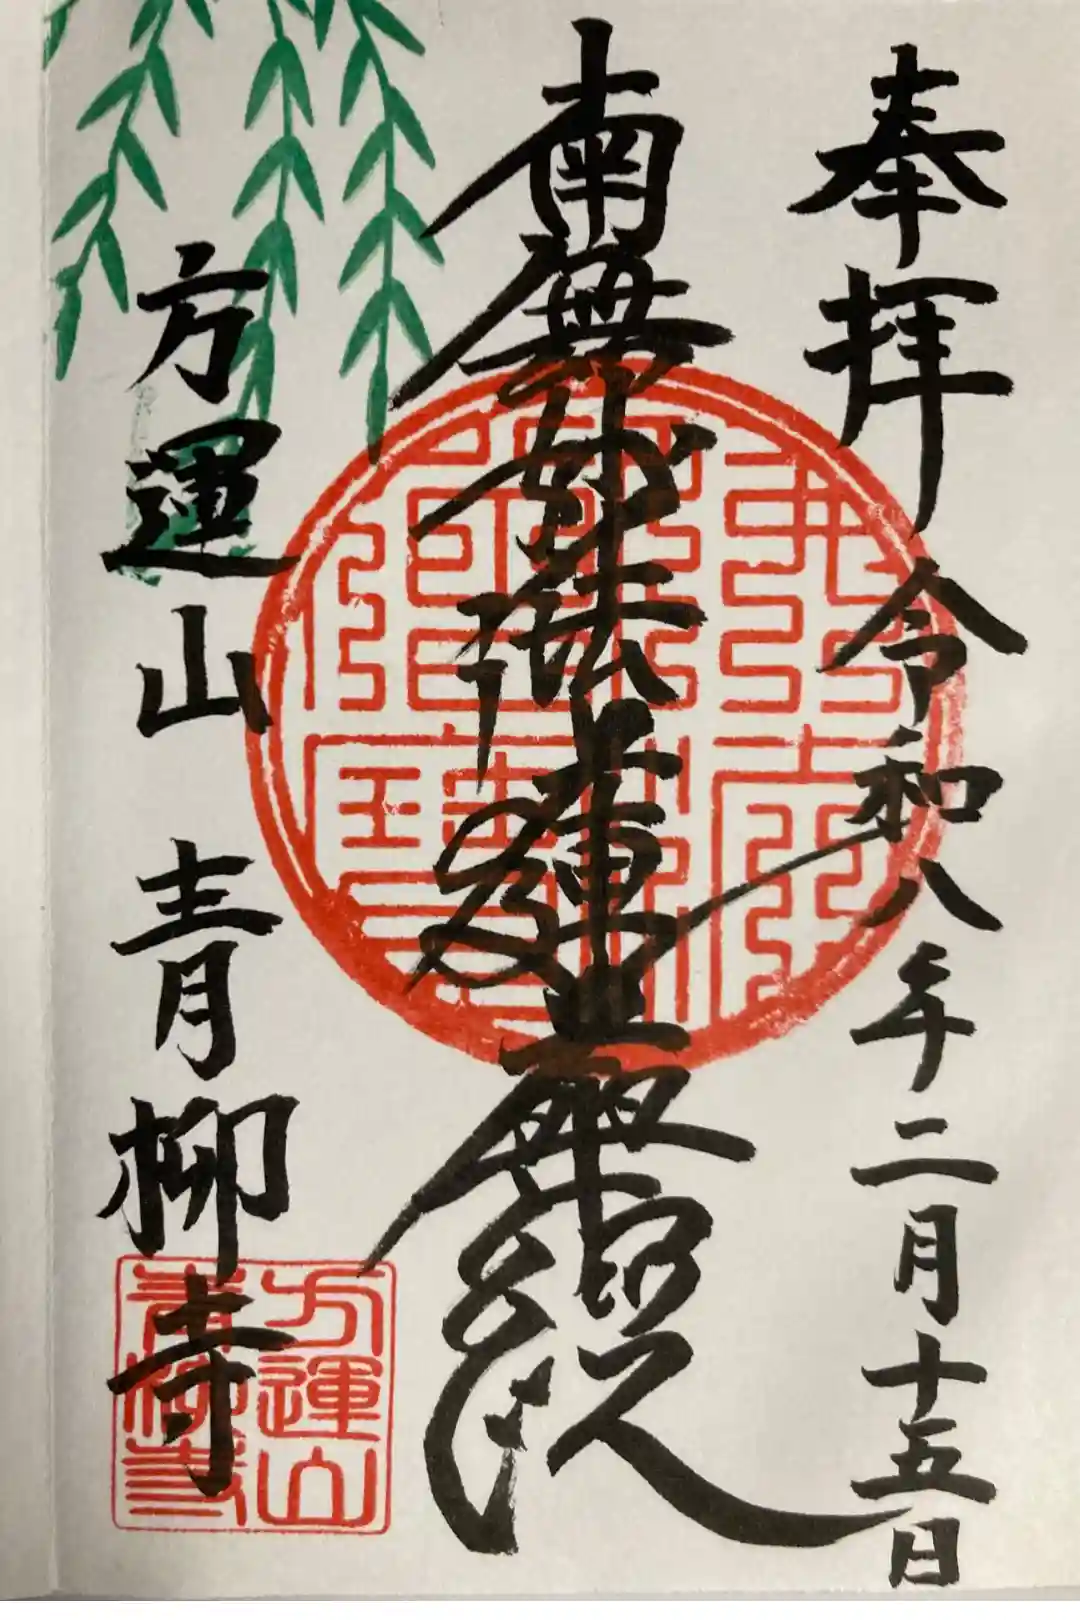 奉拝 令和八年二月十五日
南無妙法蓮華經
方運山 青柳寺
方運山
青柳寺